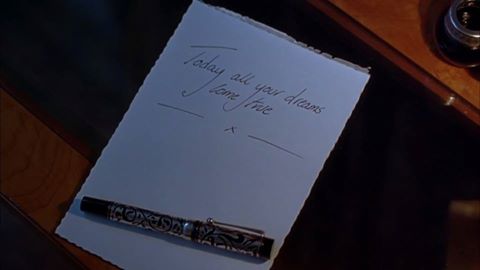 Today all your dreams
come true
x